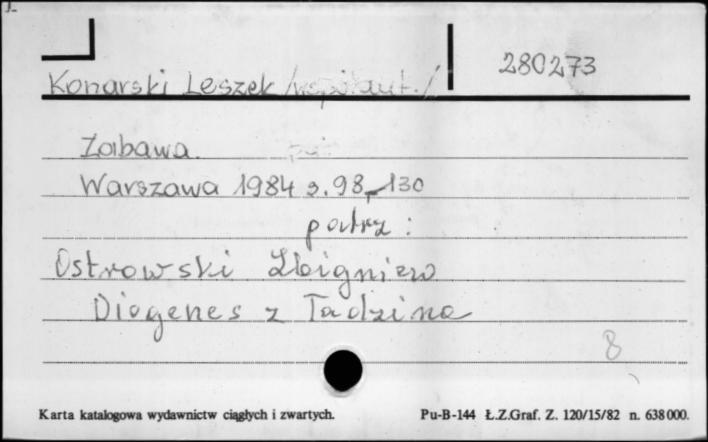 280273
Konarski Leszek /współaut./
Zabawa.
Warszawa 1984 s. 98-130
patrz:
Ostrowski Zbigniew
Diogenes z Tadzina
8
Karta katalogowa wydawnictw ciągłych i zwartych. Pu-B-144 Ł.Z.Graf. Z. 120/15/82 n. 638000.